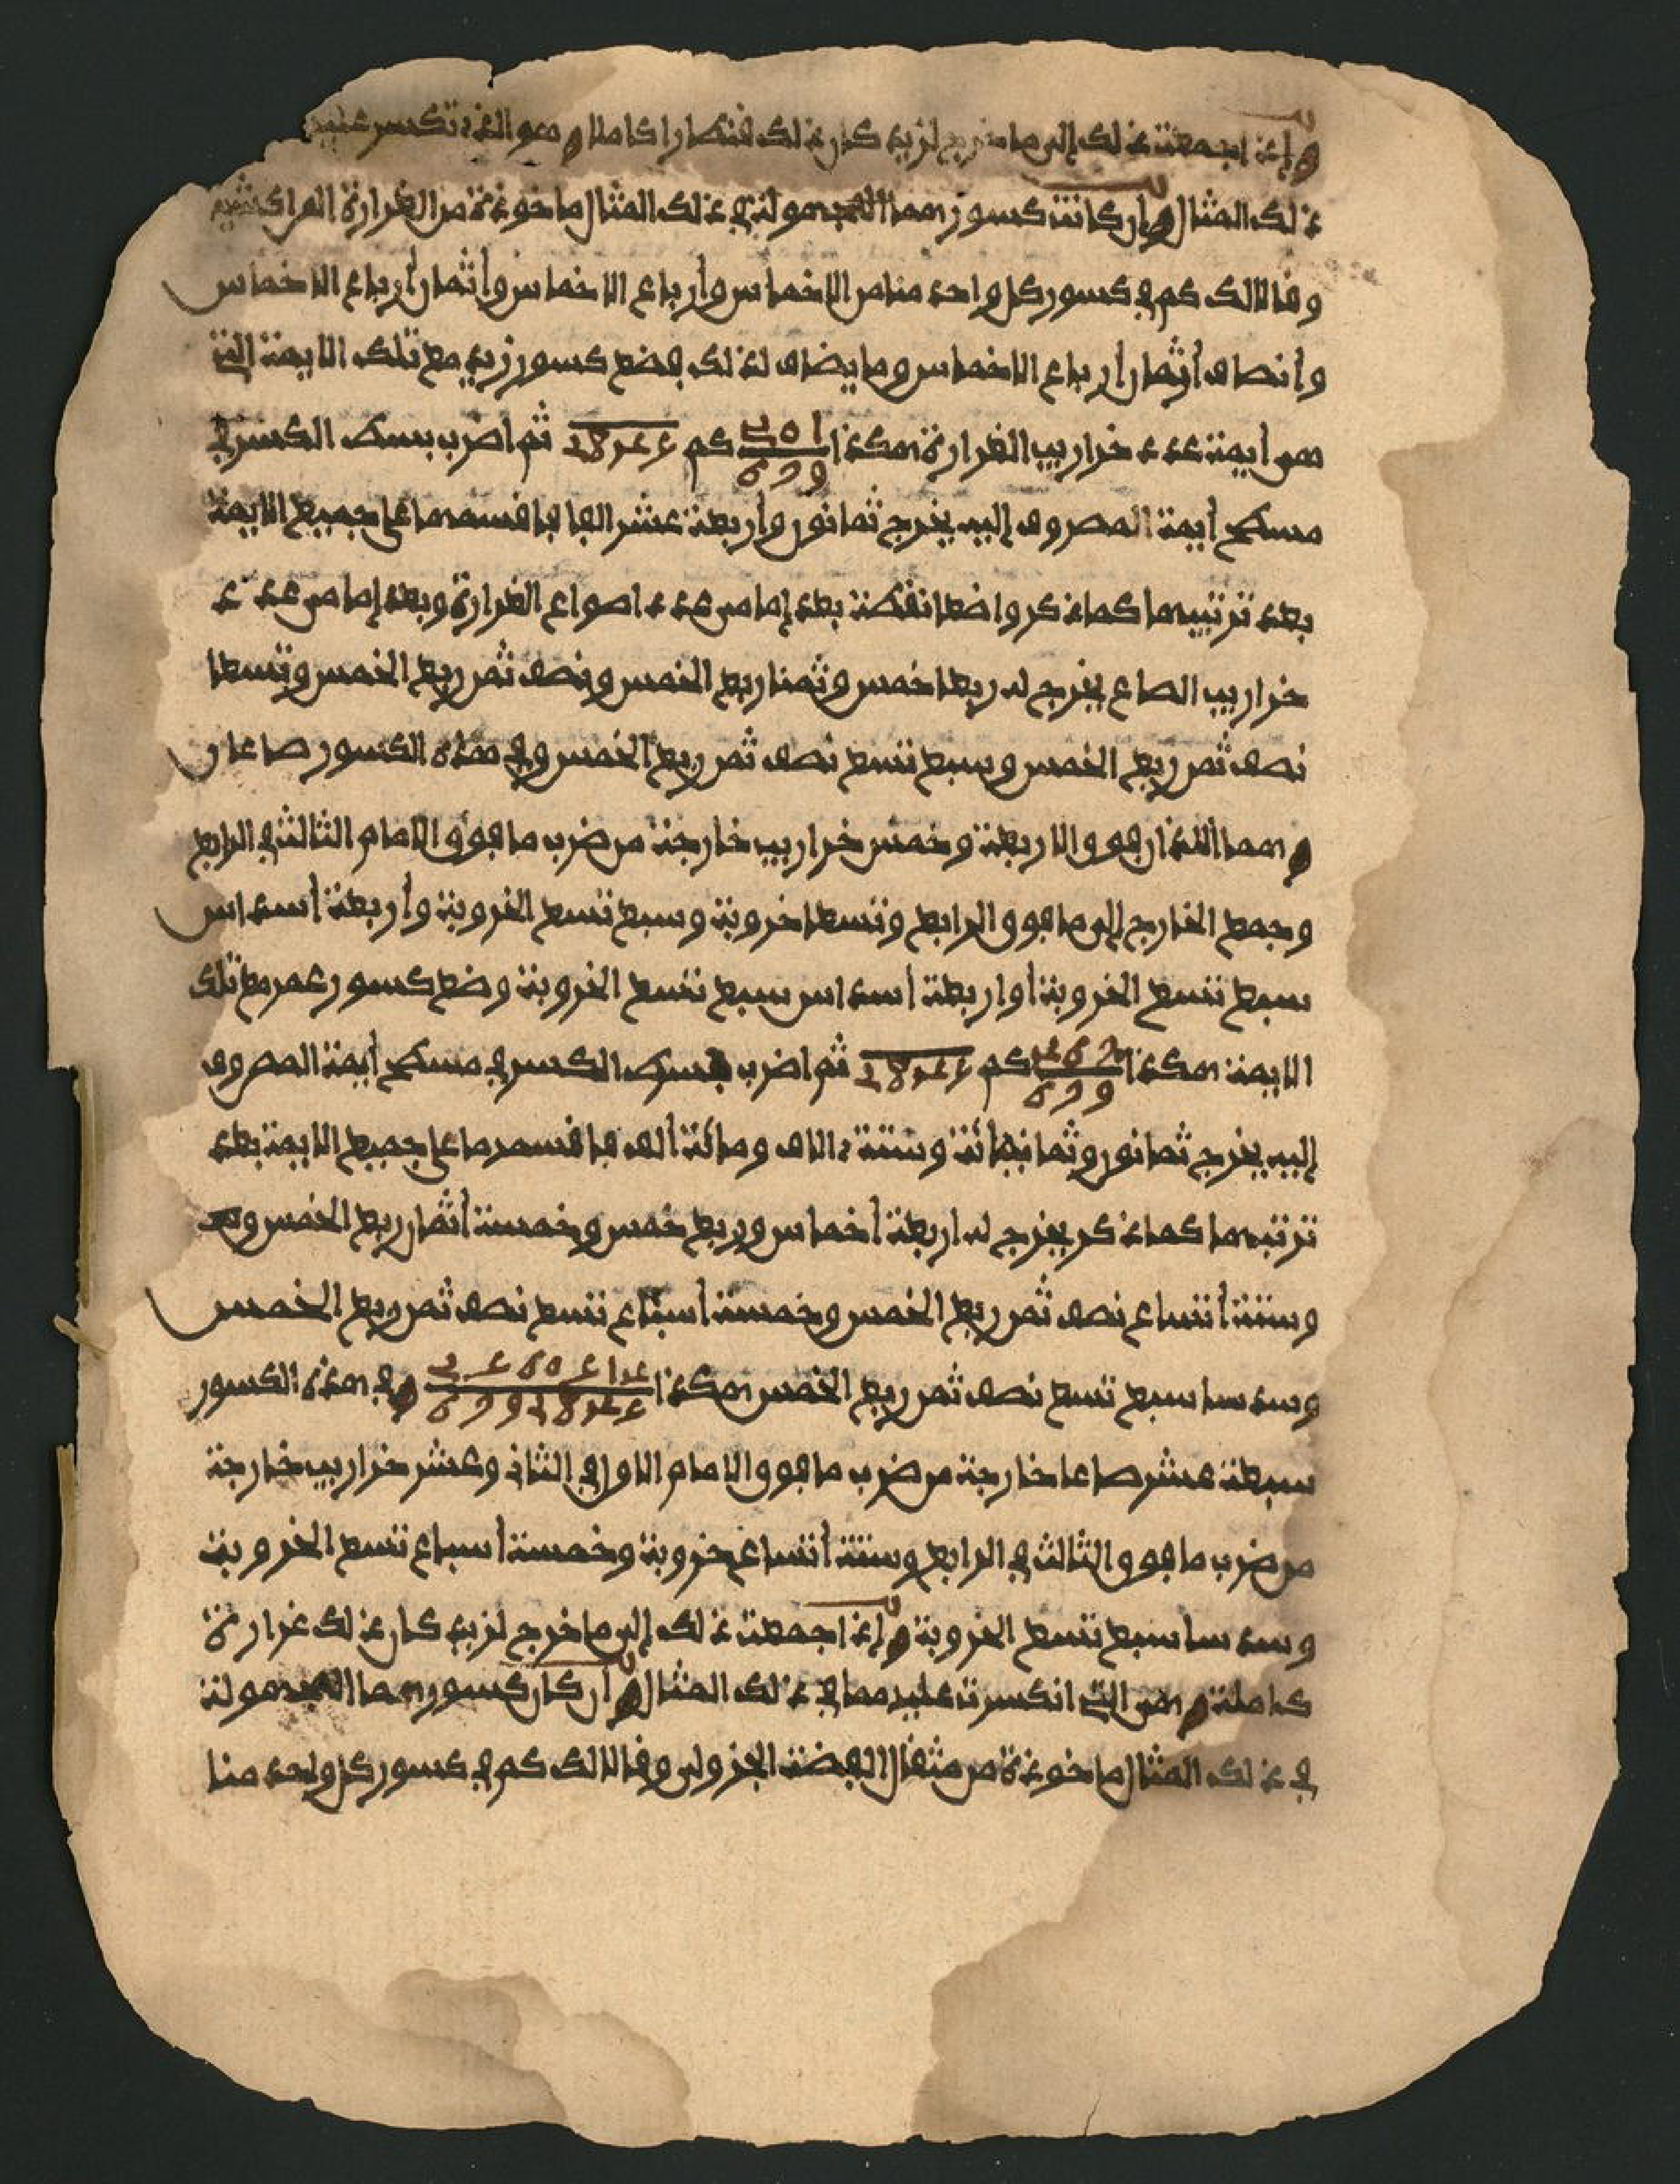 وإذا جمعت ذلك إلى ما خرج لزيد كان ذلك قنطارا كاملا وهو الذي تكسر عليه
ذلك المثال وإن كانت كسورهما المجهولة في ذلك المثال مأخوذة من الغرارة
وقال لك كم في كسور كل واحد منا من الاخماس وأرباع الاخماس وأثمان أرباع الاخماس
وأنصاف أثمان أرباع الاخماس وما يضاف لذلك فضع كسور زيد مع تلك الايمة التي
هي أيمة عدد خراريب الغرارة هكذا كم ثم اضرب بسط الكسر في
مسطح أيمة المصروف إليه يخرج ثمانون وأربعة عشر الفا فاقسمها على جميع الايمة
بعد ترتيبها كما ذكر واضعا نقطة بعد إمامي عدد اصواع الغرارة وبعد إمامي عدد
خراريب الصاع يخرج له ربعا خمس وثمنا ربع الخمس ونصف ثمن ربع الخمس وتسعا
نصف ثمن ربع الخمس وسبع تسع نصف ثمن ربع الخمس وفي هذه الكسور صاعان
وهما اللذان فوق الاربعة وخمس خراريب خارجة من ضرب ما فوق الامام الثالث في الرابع
وجمع الخارج إلى ما فوق الرابع وتسعا خروبة وسبع تسع الخروبة وأربعة أسداس
سبع تسع الخروبة أو اربعة اسداس سبع تسع الخروبة وضع كسور عمر مع تلك
الايمة هكذا كم ثم اضرب بسط الكسر في مسطح أيمة المصروف
إليه يخرج ثمانون وثمانمائة وستة ءالاف ومائة ألف فاقسمها على جميع الايمة بعد
ترتبها كما ذكر يخرج له اربعة أخماس وربع خمس وخمسة أثمان ربع الخمس
وستة أتساع نصف ثمن ربع الخمس وخمسة أسباع تسع نصف ثمن ربع الخمس
وسدسا سبع تسع نصف ثمن ربع الخمس هكذا وفي هذه الكسور
سبعة عشر صاعا خارجة من ضرب ما فوق الامام الاول في الثاني وعشر خراريب خارجة
من ضرب ما فوق الثالث في الرابع وستة أتساع خروبة وخمسة أسباع تسع الخروبة
وسدسا سبع تسع الخروبة وإذا جمعت ذلك إلى ما خرج لزيد كان ذلك غرارة
كاملة وهي التي انكسرت عليهما في ذلك المثال وإن كان كسورهما المجهولة
في ذلك المثال مأخوذة من مثقال الفضة الجزولي وقال لك كم في كسور كل واحد منا